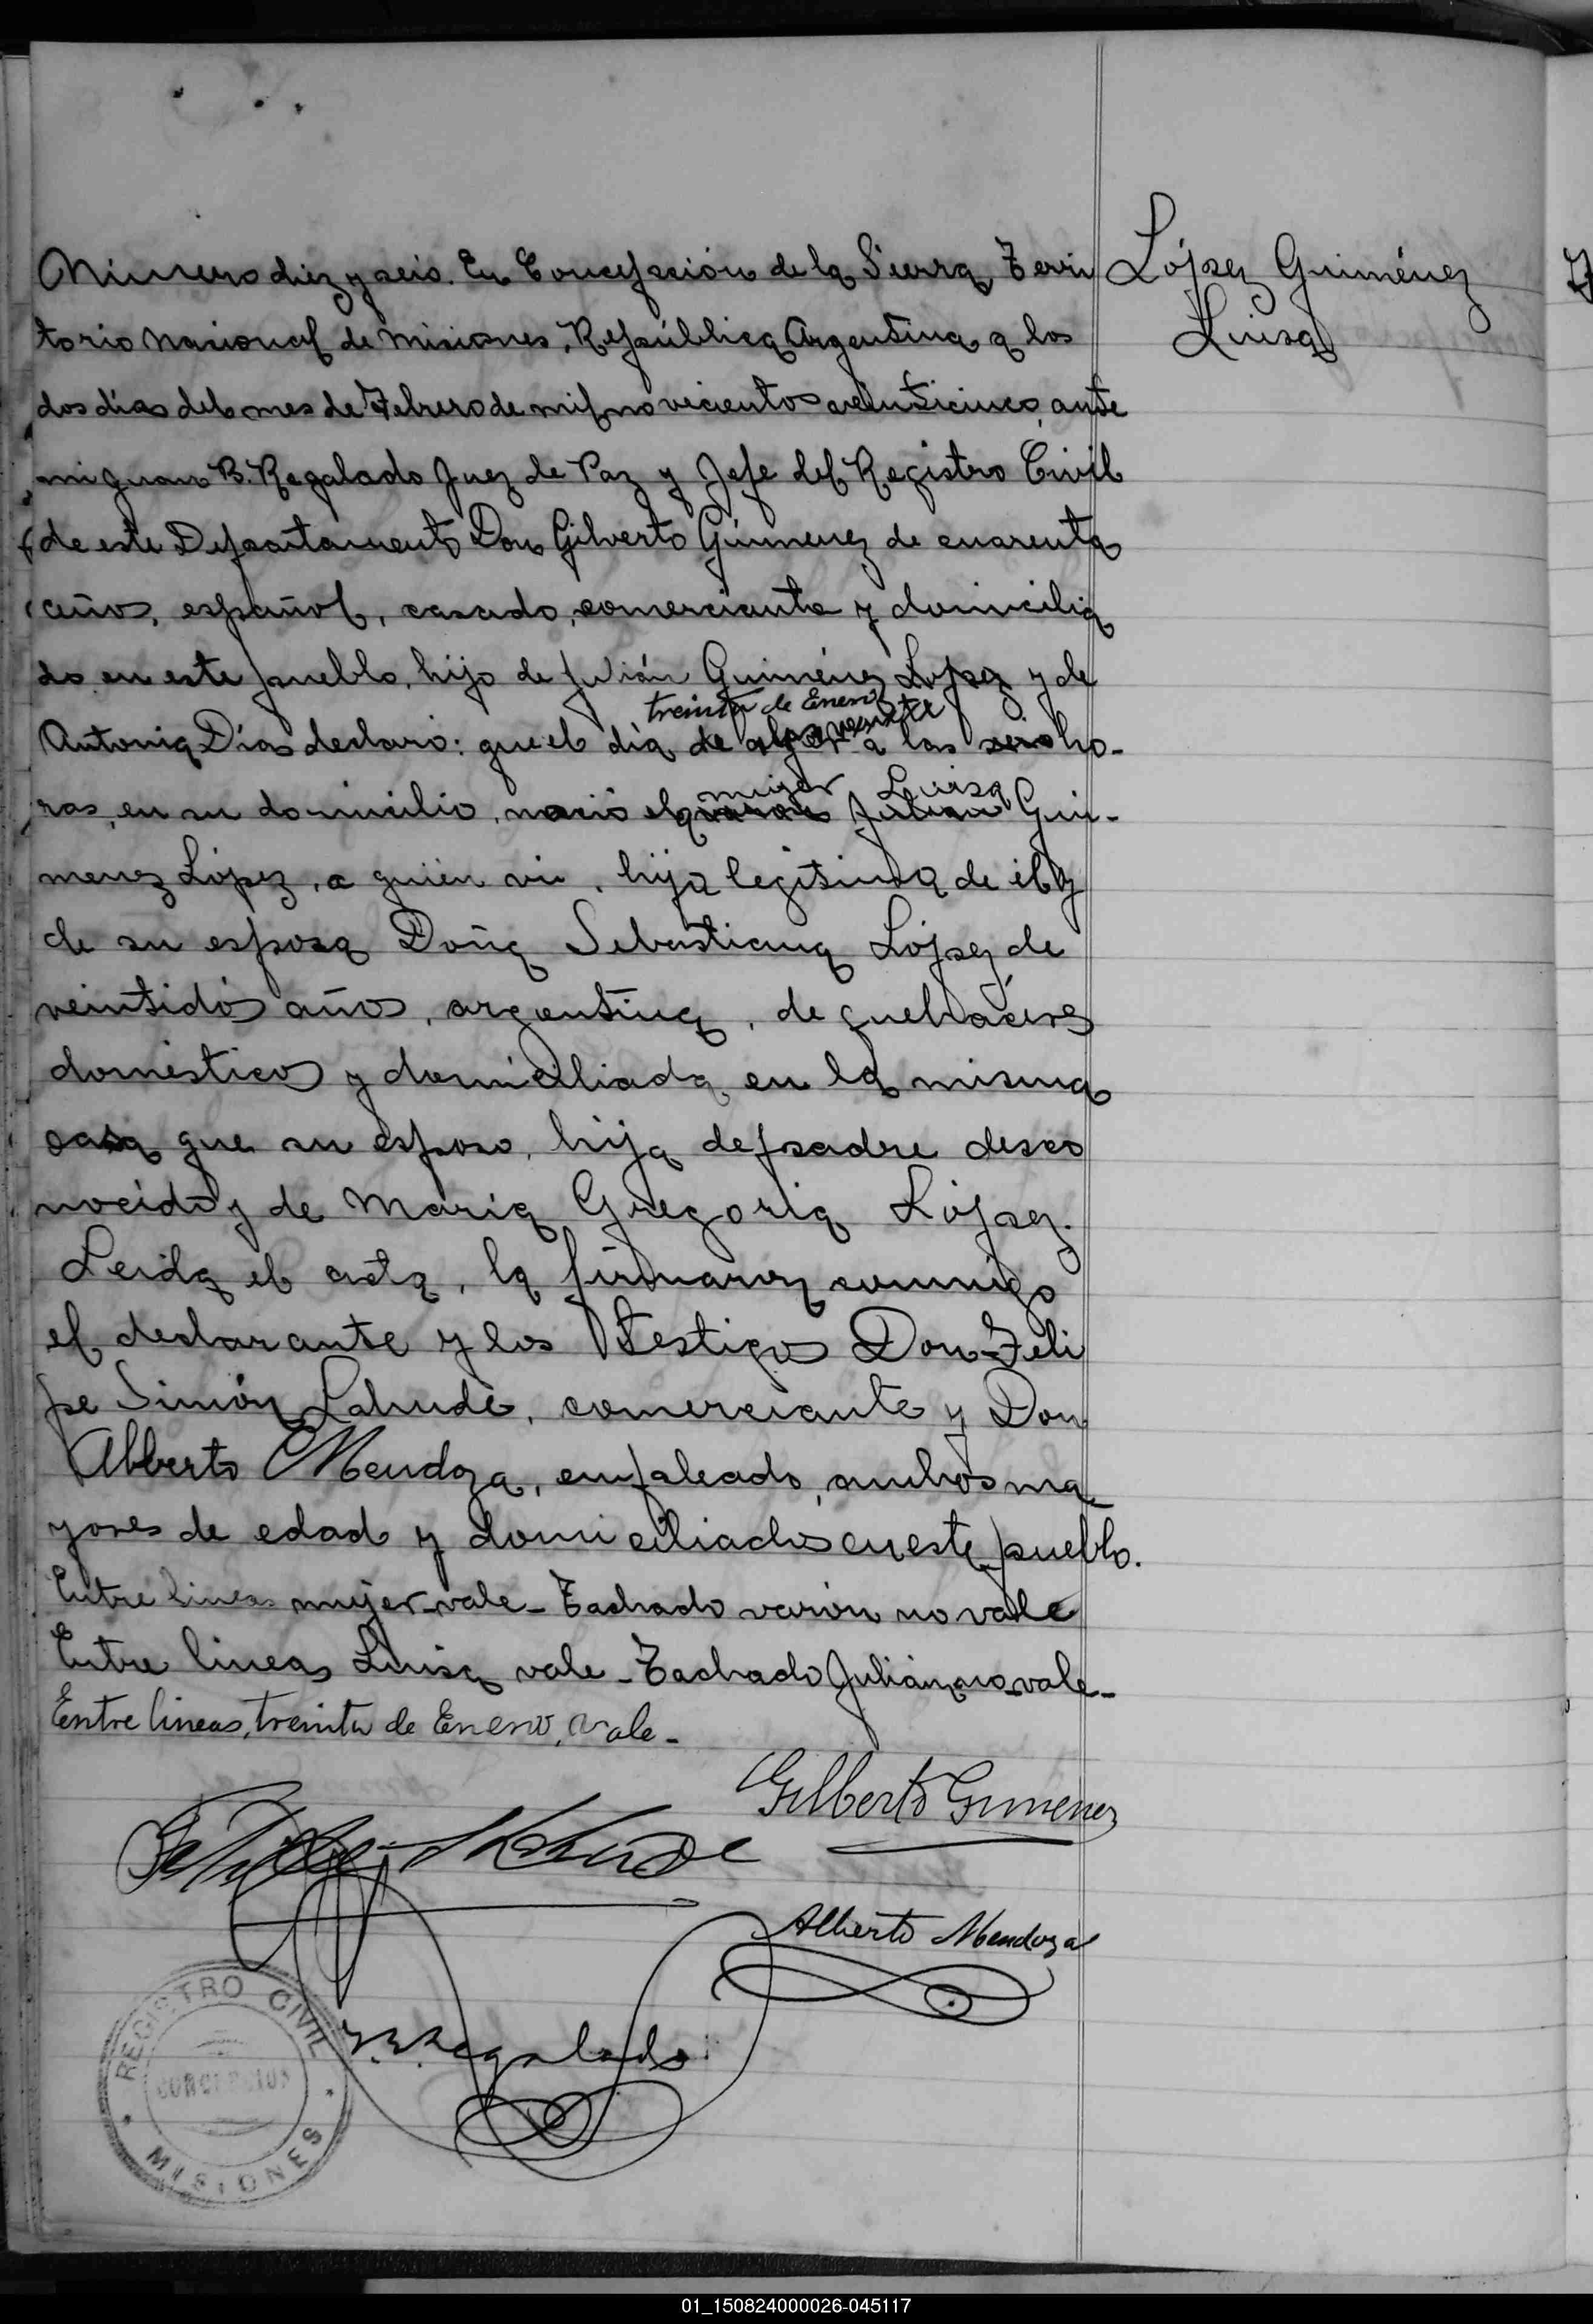 López Guiménez
Luisa
Número diez y seis. En Concepción de la Sierra, Terri
torio Nacional de Misiones, República Argentina, a los
dos días del mes de Febrero de mil novecientos veinticinco, ante
mi Juan B. Regalado Juez de Paz y Jefe del Registro Civil
de este Departamento Don Gilverto Guimenez de cuarenta
años, español, casado, comerciante y domicilia
do en este pueblo, hijo de Julián Guiménez López y de
treinta de Enero
Antonia Días declaró: que el día de a las seis ho-
mujer Luisa
ras, en su domicilio, nació el varon Julian Gui-
menez López, a quien vi, hija legitima de él y
de su esposa Doña Sebastiana López de
veintidós años, argentina, de quehaceres
domésticos y domiciliada en la misma
casa que su esposo, hija de padre desco
nocido y de Maria Gregoria López.
Leida el acta, la firmaron conmigo
el declarante y los testigos Don Feli
pe Simón Lahude, comerciante y Don
Alberto Mendoza, empleado, ambos ma-
yores de edad y domiciliados en este pueblo.
Entre lineas mujer-vale-Tachado varón no vale
Entre lineas Luisa vale-Tachado Julián, no vale-
Entre lineas, treinta de Enero, vale-
Gilberto Gimenez
Alberto Mendoza
J. B. Regalado
REGISTRO CIVIL
CONCEPCION
MISIONES
01_150824000026-045117